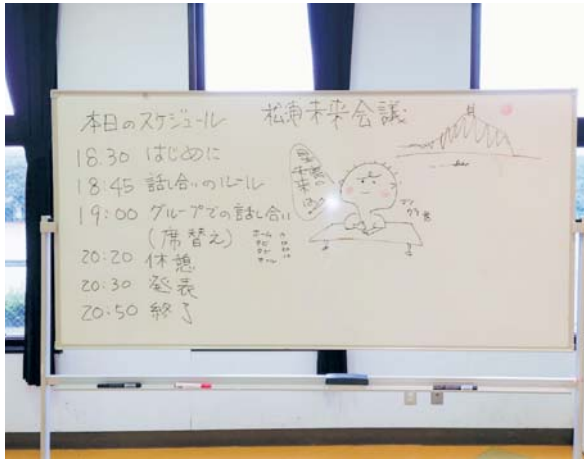 松浦未来会議
本日のスケジュール
18:30 はじめに
18:45 話し合いのルール
19:00 グループでの話し合い
(席替え)
20:20 休憩
20:30 発表
20:50 終了